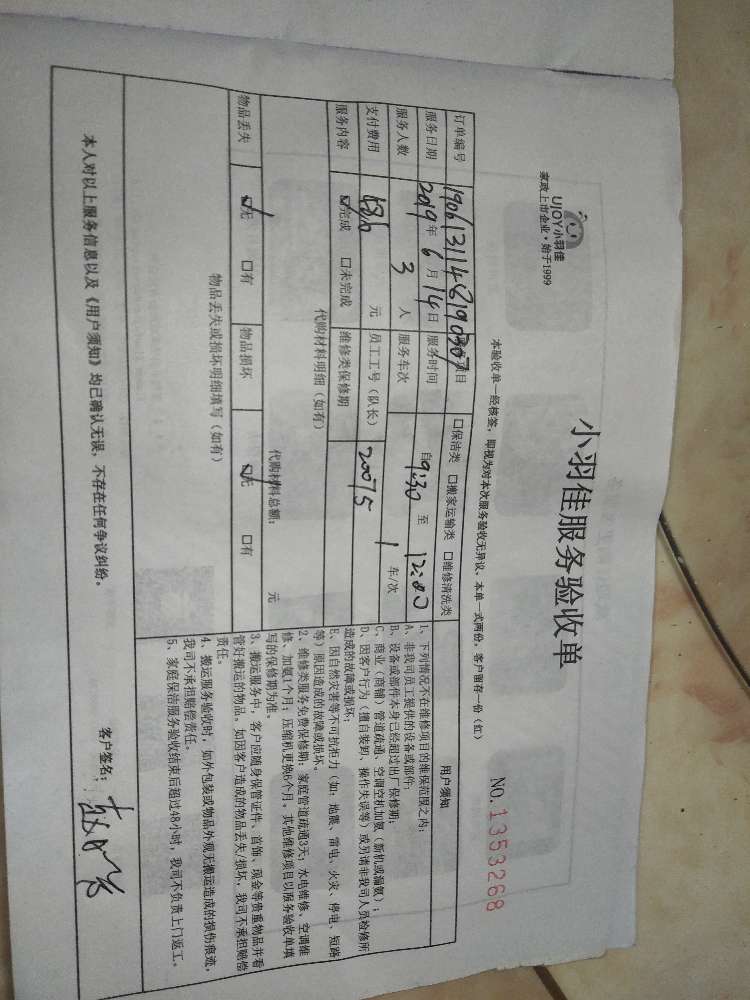 UJOY小羽佳
家政上市企业·始于1999
小羽佳服务验收单
NO. 1353268
本验收单一经核签，即视为对本次服务验收无异议，本单一式两份，客户留存一份（红）
订单编号 1906131148190307 项目 □保洁类 □搬家运输类 □维修清洗类
服务日期 2019年6月14日 服务时间 自9:30至12:00
服务人数 3人 服务车次 1车/次
支付费用 元 员工工号（队长） 20075
服务内容 ☑完成 □未完成 维修类保修期
代购材料明细（如有）
代购材料总额： 元
物品丢失 ☑无 □有 物品损坏 ☑无 □有
物品丢失或损坏明细填写（如有）
用户须知
1、下列情况不在维修项目的维保范围之内：
A、非我司员工提供的设备或部件；
B、设备或部件本身已经超过出厂保修期；
C、商业（商铺）管道疏通、空调空机加氨（新机或漏氨）；
D、因客户行为（擅自装卸、操作失误等）或另请非我司人员检修所
造成的故障或损坏；
E、因自然灾害等不可抗拒力（如：地震、雷电、火灾、停电、短路
等）原因造成的故障或损坏。
2、维修类服务免费保修期：家庭管道疏通3天，水电维修、空调维
修、加氨1个月，压缩机更换6个月，其他维修项目以服务验收单填
写的保修期为准。
3、搬运服务中，客户应随身保管证件、首饰、现金等贵重物品并看
管好搬运的物品。如因客户造成的物品丢失/损坏，我司不承担赔偿
责任。
4、搬运服务验收时，如外包装或物品外观无搬运造成的损伤痕迹，
我司不承担赔偿责任。
5、家庭保洁服务验收结束后超过48小时，我司不负责上门返工。
本人对以上服务信息以及《用户须知》均已确认无误，不存在任何争议纠纷。
客户签名：